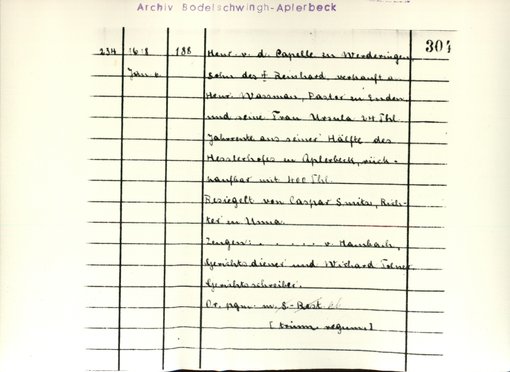 Archiv Bodelschwingh-Aplerbeck
304
234 1618 188 Henr. v. d. Capelle zu Werderingen,
Jan 6. Sohn des ‡ Reinhard, verkauft a.
Henr. Wassman, Pastor in Enden
und seine Frau Ursula 24 Thl.
Jahrrente aus seiner Hälfte des
Hesslerhofes in Aplerbeck, rück-
kaufbar mit 400 Thl.
Besiegelt von Caspar Smitz, Rich-
ter in Unna.
Zeugen: . . . . . v. Hambach,
Gerichtsdiener und Wichard
Gerichtsschreiber.
Or. pgm. m. S-Rest.